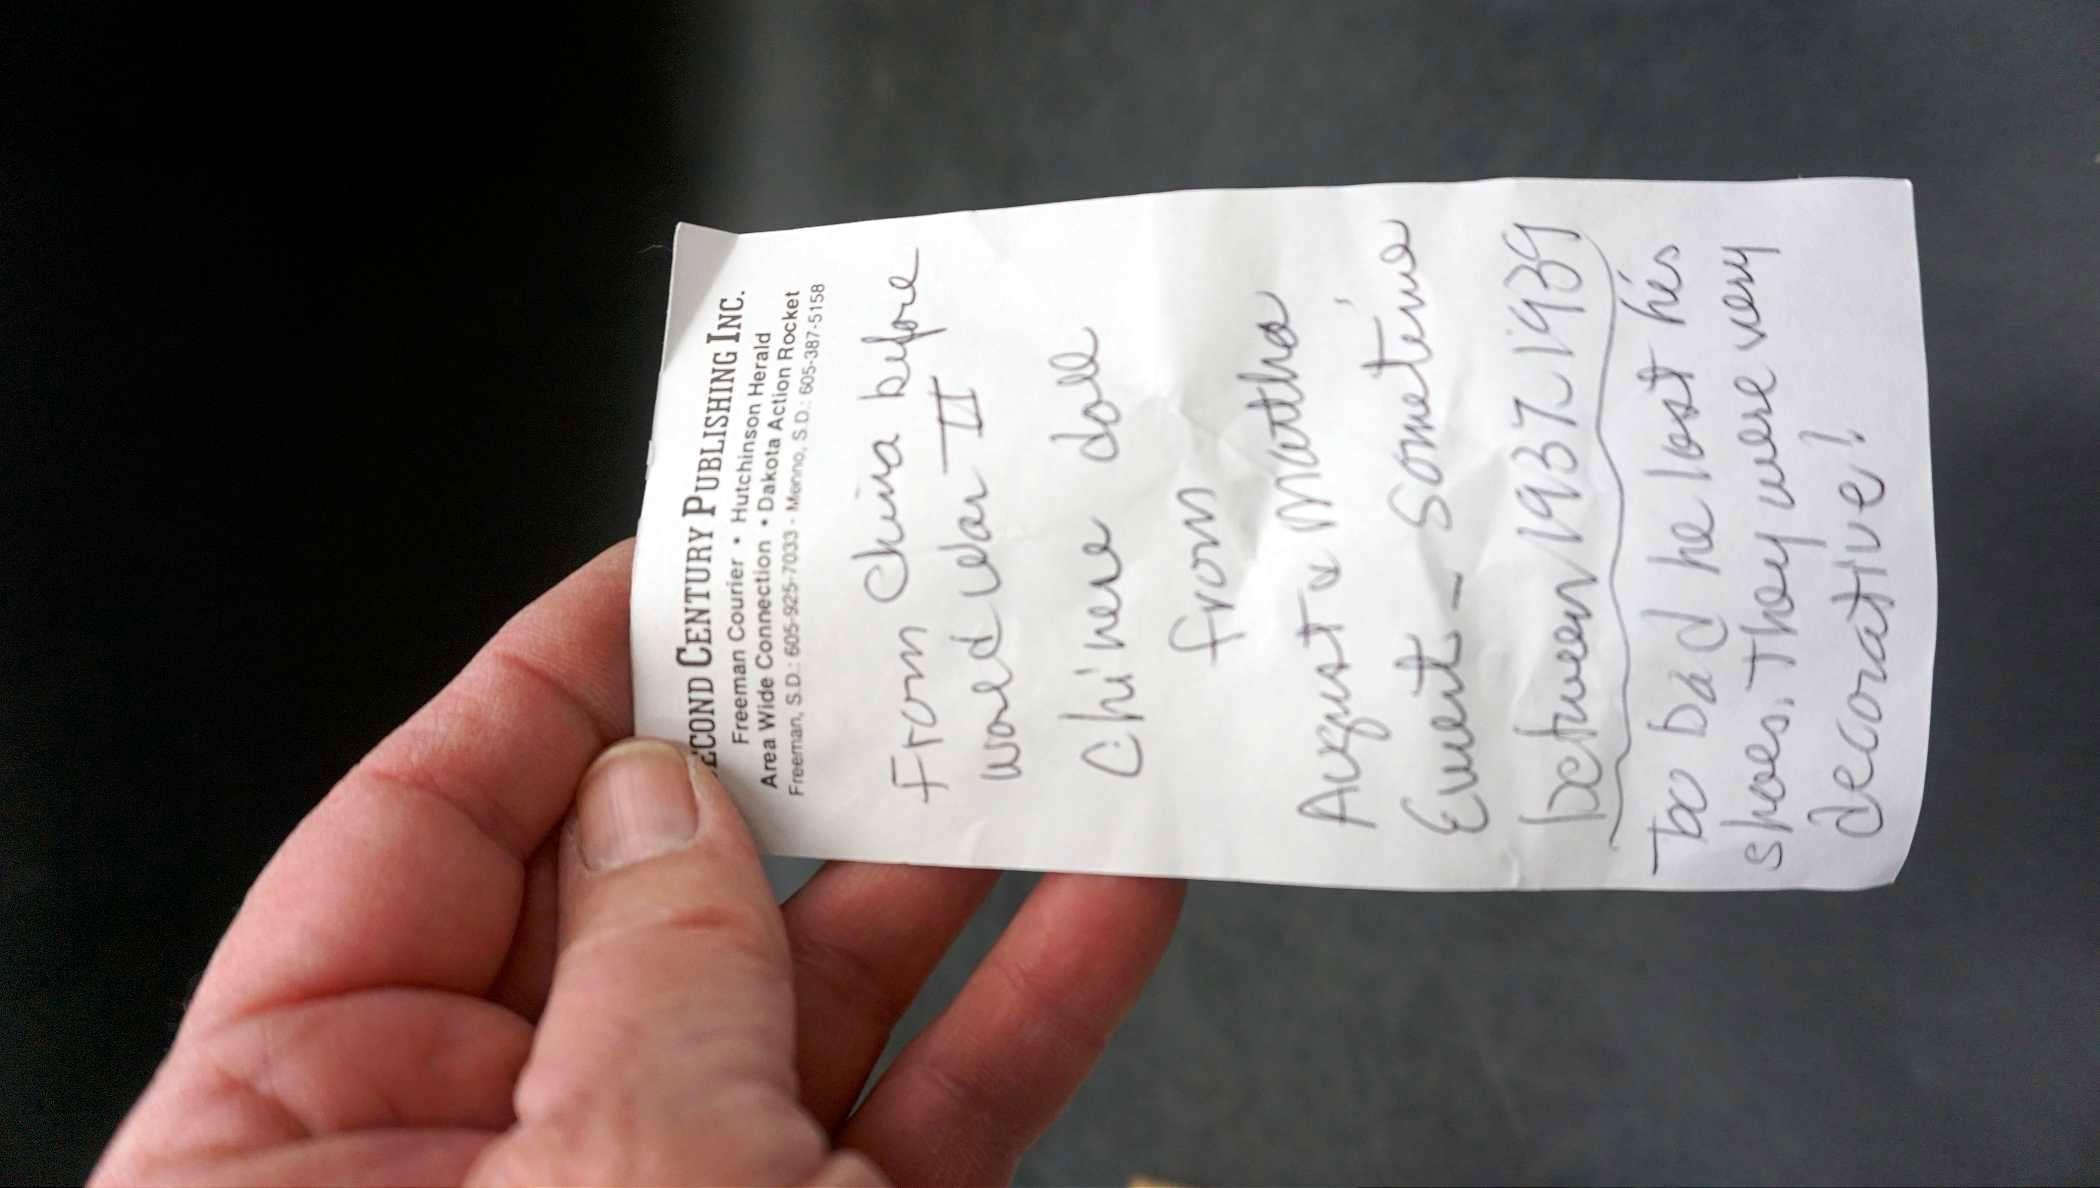 ECOND CENTURY PUBLISHING INC.
Freeman Courier • Hutchinson Herald
Area Wide Connection • Dakota Action Rocket
Freeman, S.D.: 605-925-7033 - Menno, S.D.: 605-387-5158
From China before
World War II
Chinese doll
from
August & Martha
Ewert - sometime
between 1937-1939
Too bad he lost his
shoes. They were very
decorative!